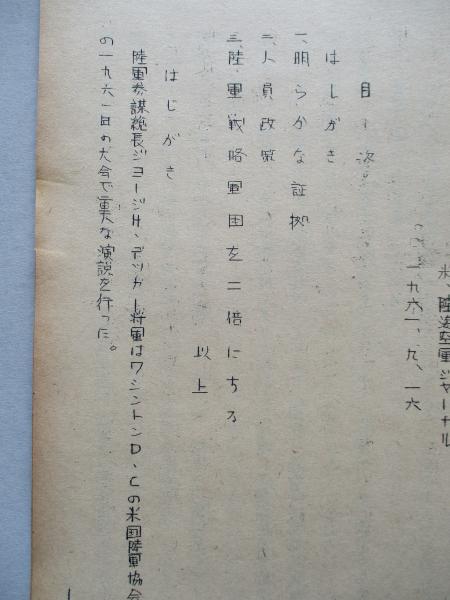 米、陸海空軍ジャーナル
一九六一、九、一六
目次
はしがき
一、明らかな証拠
二、人員政策
三、陸軍戦略軍団を二倍にする
以上
はしがき
陸軍参謀総長ジョージH・デッカー将軍はワシントンD、Cの米国陸軍協会
の一九六一年の大会で重大な演説を行った。